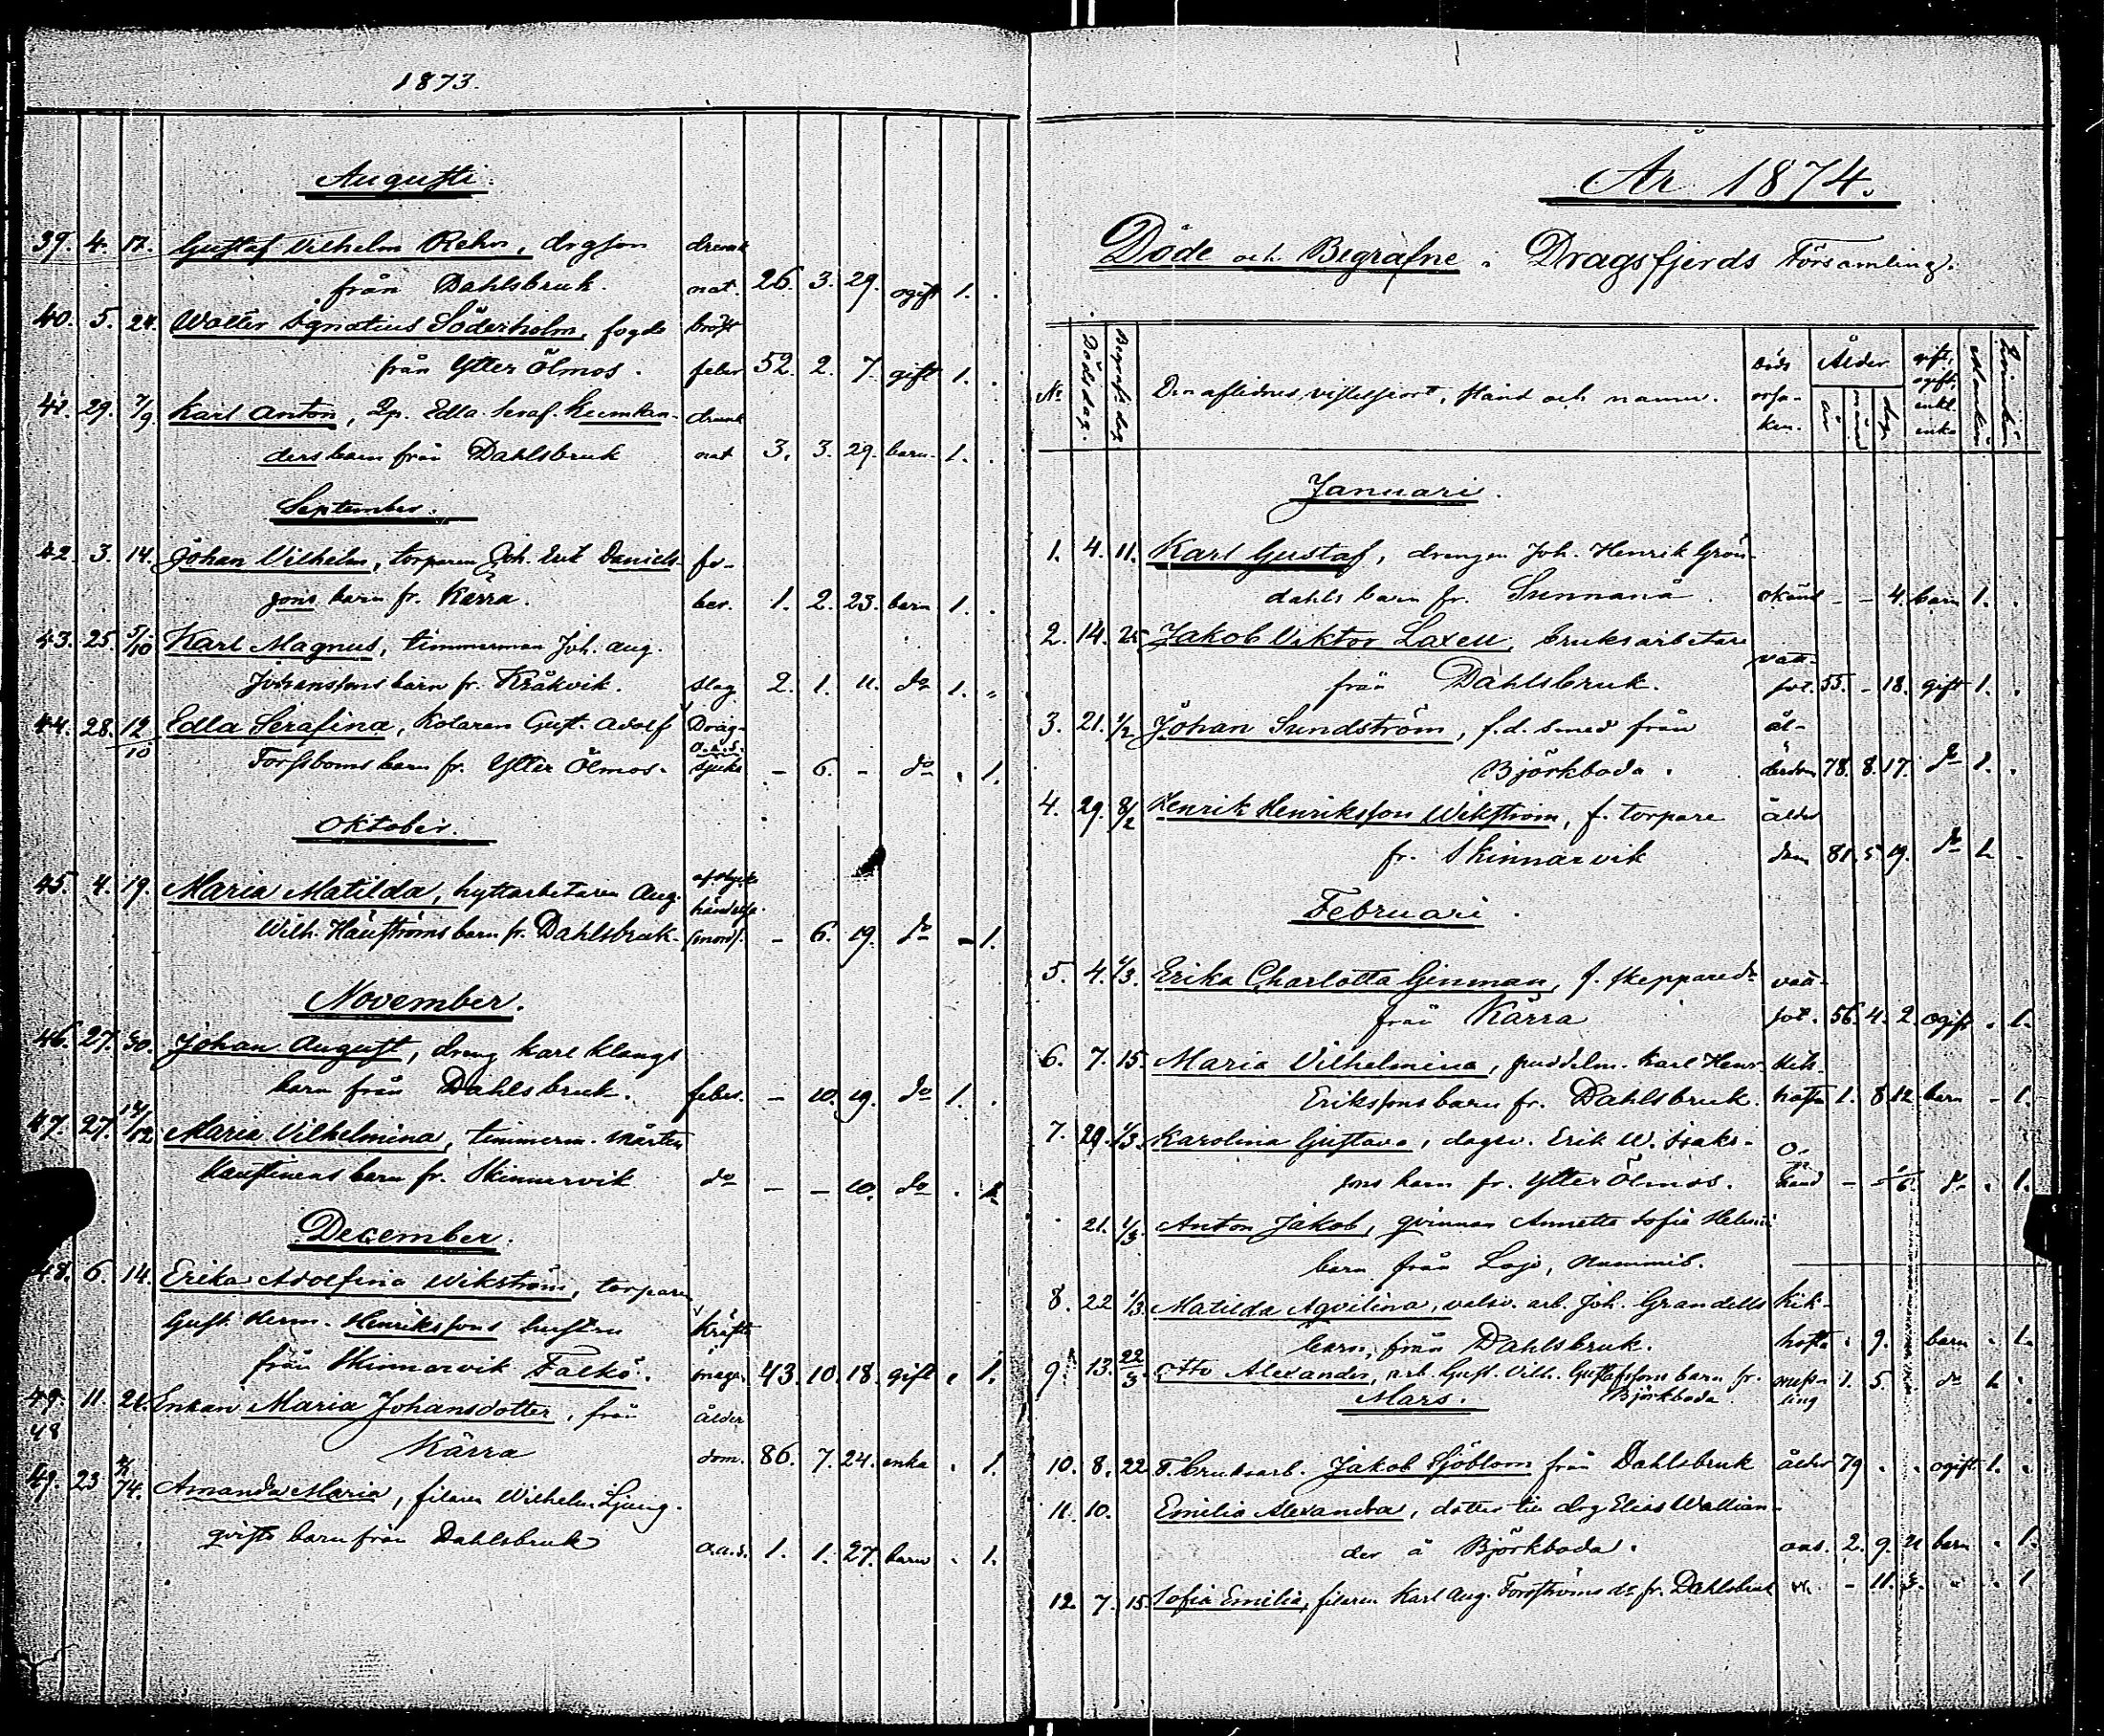 1873.
Augusti.
39. 4. 17. Gustaf Vilhelm Rehn, drgson drunk
från Dahlsbruk. nat. 26. 3. 29. ogift 1. .
40. 5. 24. Walter Ignatius Söderholm, fogde bröst
från Ytter Ölmos. feber 52. 2. 7. gift 1. .
41. 29. 7/9 Karl Anton, Qp. Edla Seraf. drunk
ders barn från Dahlsbruk nat 3. 3. 29. barn 1. .
September.
42. 3. 14. Johan Vilhelm, torparen Joh. Daniels- fe-
sons barn fr. Kärra. ber. 1. 2. 23. barn 1. .
43. 25. 5/10 Karl Magnus, timmerman Joh. Aug.
Johanssons barn fr. Kråkvik. slag 2. 1. 11. do 1. "
44. 28. 12/10 Edla Serafina, Kolaren Gust. Adolf Drag-
o.a.s.
Forssboms barn fr. Ytter Ölmos. sjuka - 6. - do . 1.
Oktober.
45. 4. 19. Maria Matilda, hyttarbetaren Aug. händelse
Wilh. barn fr. Dahlsbruk. - 6. 19. do - 1.
November.
46. 27. 30. Johan August, dreng Karl Klangs
barn från Dahlsbruk. feber. - 10. 19. do 1. .
47. 27. 14/12 Maria Vilhelmina, timmerm. Mårten
barn fr. Skinnarvik do - - 10. do . 1.
December.
48. 6. 14. Erika Adolfina Wikström, torparen
Gust. Herm. Henrikssons hustru kräft
från Skinnarvik Falkö. magen 43. 10. 18. gift . 1.
49. 11. 21. Enkan Maria Johansdotter, från ålder
48
Kärra dom. 86. 7. 24. enka . 1.
49. 23 /74. Amanda Maria, filaren Wilhelm Ljung-
qvists barn från Dahlsbruk o.a.s. 1. 1. 27. barn . 1.
År 1874.
Döde och Begrafne i Dragsfjerds Församling.
No Dödsdag. Begrafn. dag Den aflidnes vistelseort, stånd och namn. Döds orsa- ken. Ålder år månd dag gift, ogift, enkl. enka Mankön Qvinkön
Januari.
1. 4. 11. Karl Gustaf, drengen Joh. Henrik Grön-
dahls barn fr. Sunnanå. okänd - - 4. barn 1. .
2. 14. 25. Jakob Viktor Laxell, bruksarbetare vatt-
från Dahlsbruk. sot. 55. - 18. gift 1. .
3. 21. 1/2 Johan Sundström, f.d. smed från ål-
Björkboda. derdom 78. 8. 17. do 1. .
4. 29. 8/2 Henrik Henriksson Wikström, f. torpare ålder
fr. Skinnarvik dom 81. 5. 19. do 1. .
Februari.
5. 4. 1/3. Erika Charlotta Ginman, f. skepparedr vatt-
från Kärra sot. 56. 4. 2. ogift . 1.
6. 7. 15. Maria Vilhelmina, puddelm. Karl Henr. kik-
Erikssons barn fr. Dahlsbruk. hosta 1. 8. 12. barn - 1.
7. 29. 1/3. Karolina Gustava, dagsv. Erik W. Isaks- o-
sons barn fr. Ytter Ölmos. känd - - do . 1.
21. 1/3 Anton Jakob, qvinnan Annette Sofia
barn från Lojo, Nummis.
8. 22 1/3. Matilda Aqvilina, valsv. arb. Joh. Grandells kik-
barn, från Dahlsbruk. hosta . 9. barn . 1.
9. 13. 22/3. Otto Alexander, arb. Gust. Vilh. Gustafssons barn fr. mess- 1. 5. do 1. .
Mars. Björkboda ling
10. 8. 22 F. bruksarb. Jakob Sjöblom från Dahlsbruk ålder 79 . . ogift 1. .
11. 10. Emilia Alexandra, dotter till drg Elias Wallian-
der å Björkboda. oas. 2. 9. 21 barn . 1.
12. 7. 15. Sofia Emilia, filaren Karl Aug. Forsströms dr fr. Dahlsbruk - 11. 3. " . 1